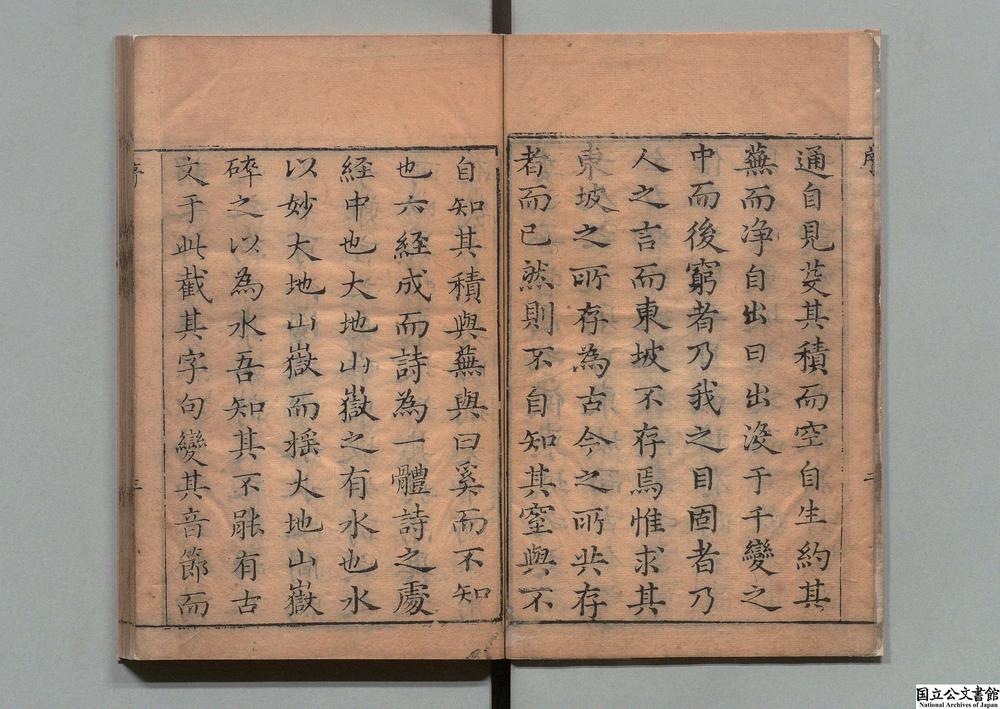 序
通自見芟其積而空自生約其
蕪而净自出曰出沒于千變之
中而後窮者乃我之目固者乃
人之言而東坡不存焉惟求其
東坡之所存為古今之所共存
者而已然則不自知其窒與不
自知其積與蕪與曰奚而不知
也六經成而詩為一體詩之處
經中也大地山嶽之有水也水
以妙大地山嶽而揺大地山嶽
碎之以為水吾知其不能有古
文于此截其字句變其音節而
国立公文書館
National Archives of Japan